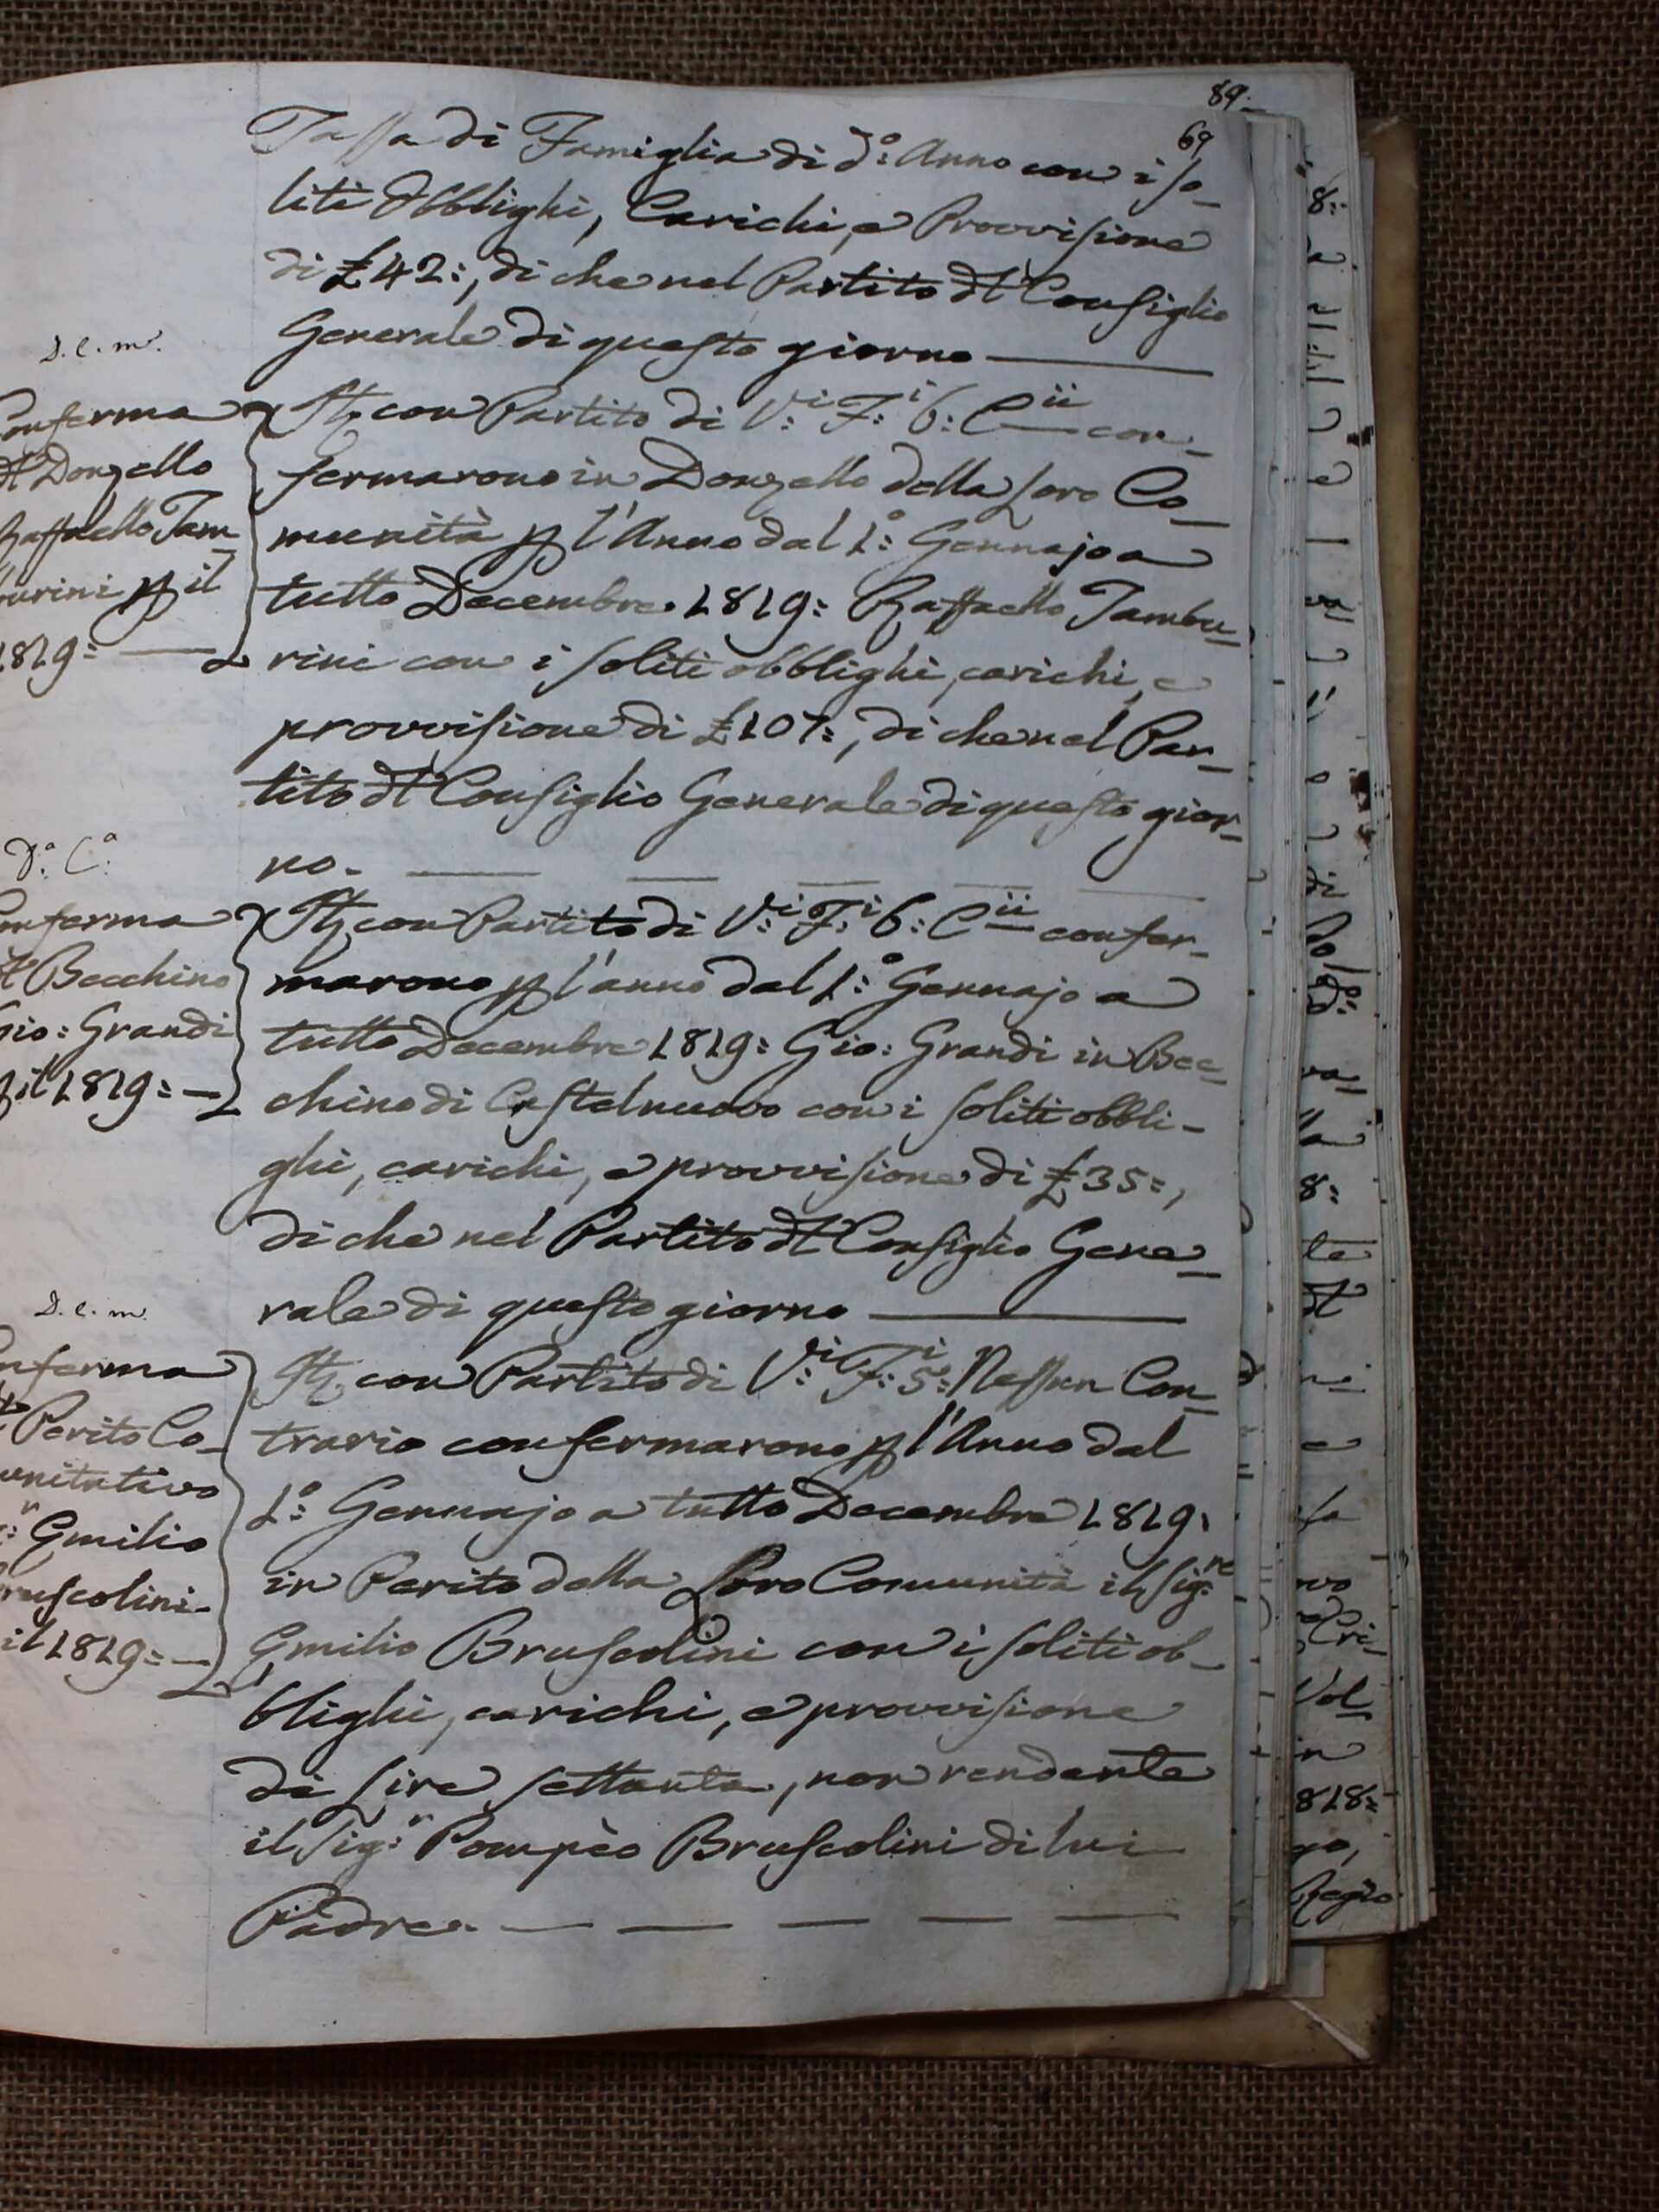 89.
69
Tassa di Famiglia di d.º Anno con i so_
liti Obblighi, Carichi, e Provvisione
di £42:, di che nel Partito dl Consiglio
Generale di questo giorno
D. C. m.
Conferma
dl Donzello
Raffaello Tam
burini p il
1819:
It, con Partito di V:i F:i 6: C ii con_
fermarono in Donzello della Loro Co_
munità p l'Anno dal 1:º Gennajo a
tutto Decembre 1819: Raffaello Tambu_
rini con i soliti obblighi, carichi, e
provvisione di £107:, di che nel Par_
tito dl Consiglio Generale di questo gior_
no.
D:a C:a
Conferma
dl Becchino
Gio: Grandi
p il 1819:
It, con Partito di V:i F:i 6: C ii confer_
marono p l'anno dal 1:º Gennajo a
tutto Decembre 1819: Gio: Grandi in Bec_
chino di Castelnuovo con i soliti obbli_
ghi, carichi, e provvisione di £35:,
di che nel Partito dl Consiglio Gene_
rale di questo giorno
D. C. m.
nferma
Perito Co_
unitativo
Emilio
ruscolini
il 1819:
It, con Partito di V:i F:i 5: Nessun Con_
trario confermarono p l'Anno dal
1:º Gennajo a tutto Decembre 1819:
in Perito della Loro Comunità il Sig:re
Emilio Bruscolini con i soliti ob_
blighi, carichi, e provvisione
di Lire settanta, non rendente
il Sig:r Pompèo Bruscolini di lui
Padre.